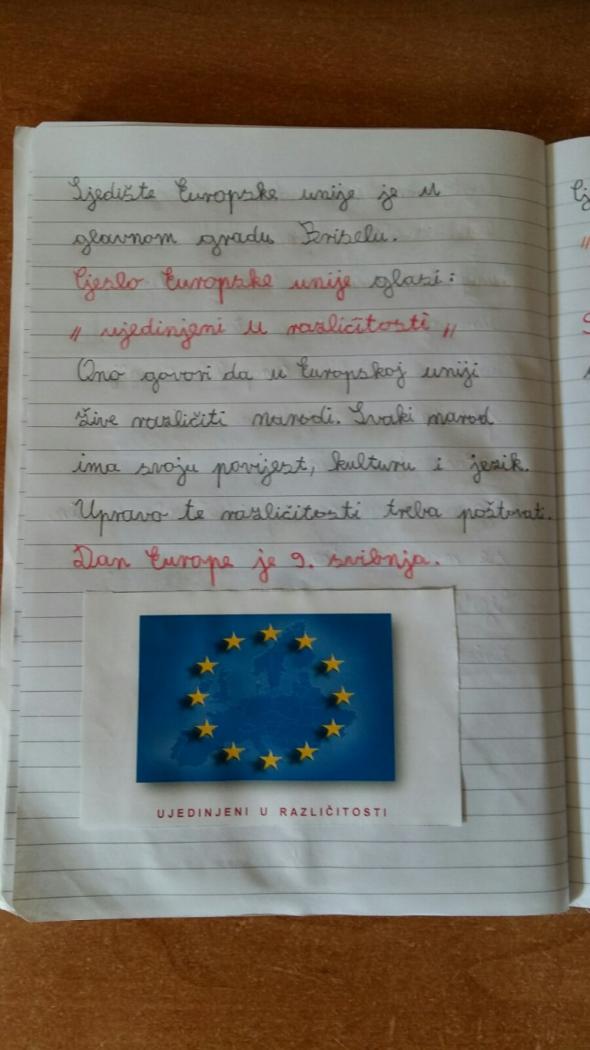 Sjedište Europske unije je u
glavnom gradu Briselu.
Geslo Europske unije glasi:
„ ujedinjeni u različitosti „
Ono govori da u Europskoj uniji
žive različiti narodi. Svaki narod
ima svoju povijest, kulturu i jezik.
Upravo te različitosti treba poštovati.
Dan Europe je 9. svibnja.
UJEDINJENI U RAZLIČITOSTI